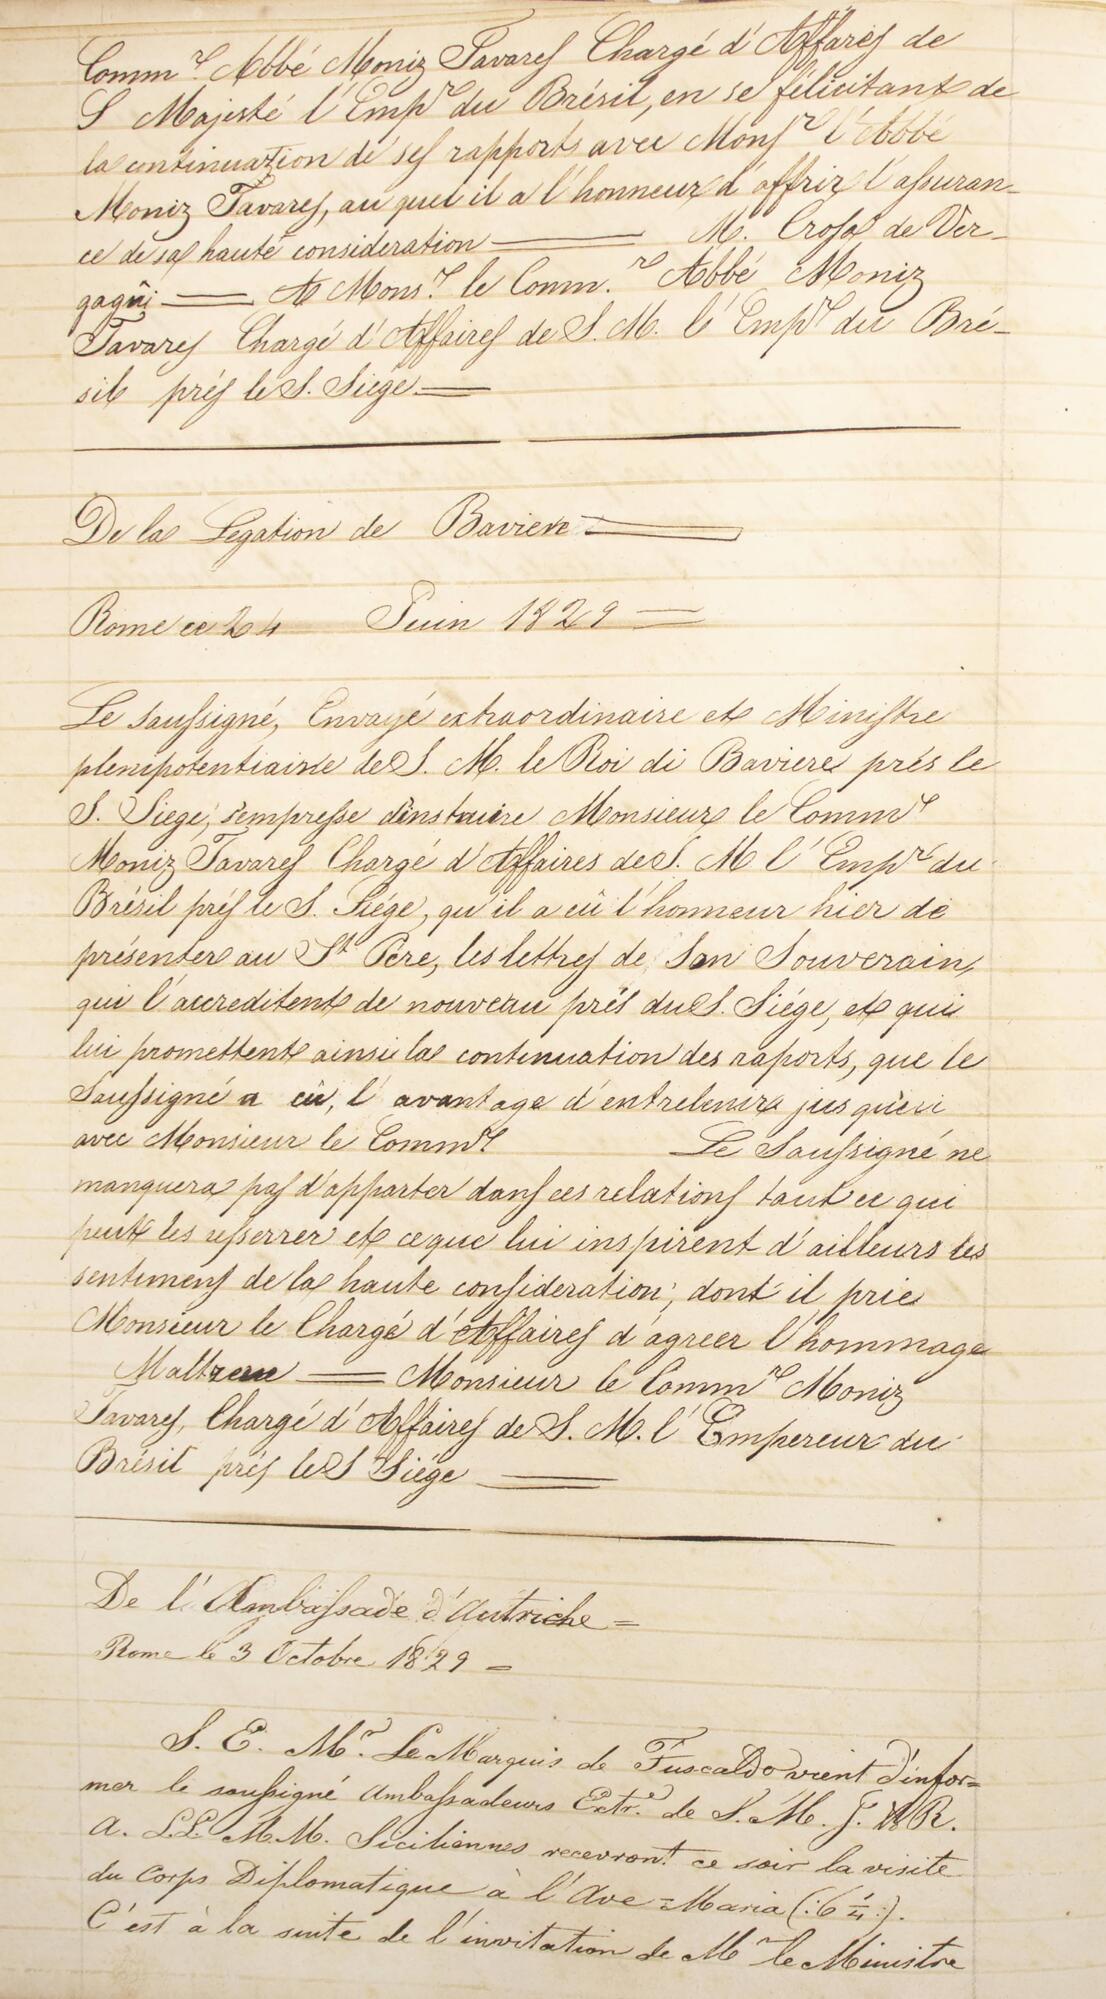 Comm.r Abbé Moniz Tavares Chargé d'Affares de
S Majesté l'Empr du Brésil, en se félicitant de
la continuation de ses rapports avec Monsr l'Abbé
Moniz Tavares, au quel il a l'honneur d'affrir l'assuran-
ce de sa haute consideration —— M. Crosa de Ver-
gagni —— A Mons.r le Comm.r Abbé Moniz
Tavares Chargé d'Affaires de S. M. l'Empr du Bré-
sil prés le S. Siége ——
De la Legation de Baviere ——
Rome ce 24 Juin 1829 ——
Le saussigné, Envayé extraordinaire et Ministre
plenipotentiaire de S. M. le Roi di Baviere prés le
S. Siege, s'empresse d'instruire Monsieur le Commr
Moniz Tavares Chargé d'Affaires de S. M l'Empr du
Brésil prés le S. Siége, qu'il a eû l'honneur hier de
présenter au St Pere, les lettres de Son Souverain,
qui l'accreditent de nouveau prés du S. Siége, et qui
lui promettent ainsi la continuation des raports, que le
Saussigné a eû, l'avantage d'entretenir jusqu'ici
avec Monsieur le Commr Le Saussigné ne
manquera pas d'apparter dans ces relations taut ce qui
peut les resserrer et ce que lui inspirent d'ailleurs les
sentimens de la haute consideration, dont il prie
Monsieur le Chargé d'Affaires d'agreer l'hommage
Maltzeu —— Monsieur le Commr Moniz
Tavares, Chargé d'Affaires de S. M. l'Empereur du
Brésil prés le S Siége ——
De l'Ambassade d'Autriche =
Rome le 3 Octobre 1829 =
S. E. Mr. Le Marquis de Fuscaldo vient d'infor=
mer le soussigné Ambassadeurs Extr.e de S. M. J. R.
A. LL. MM. Siciliennes recevront ce soir la visite
du Corps Diplomatique à l'Ave = Maria (:6 1/4:).
C'est à la suite de l'invitation de Mr le Ministre